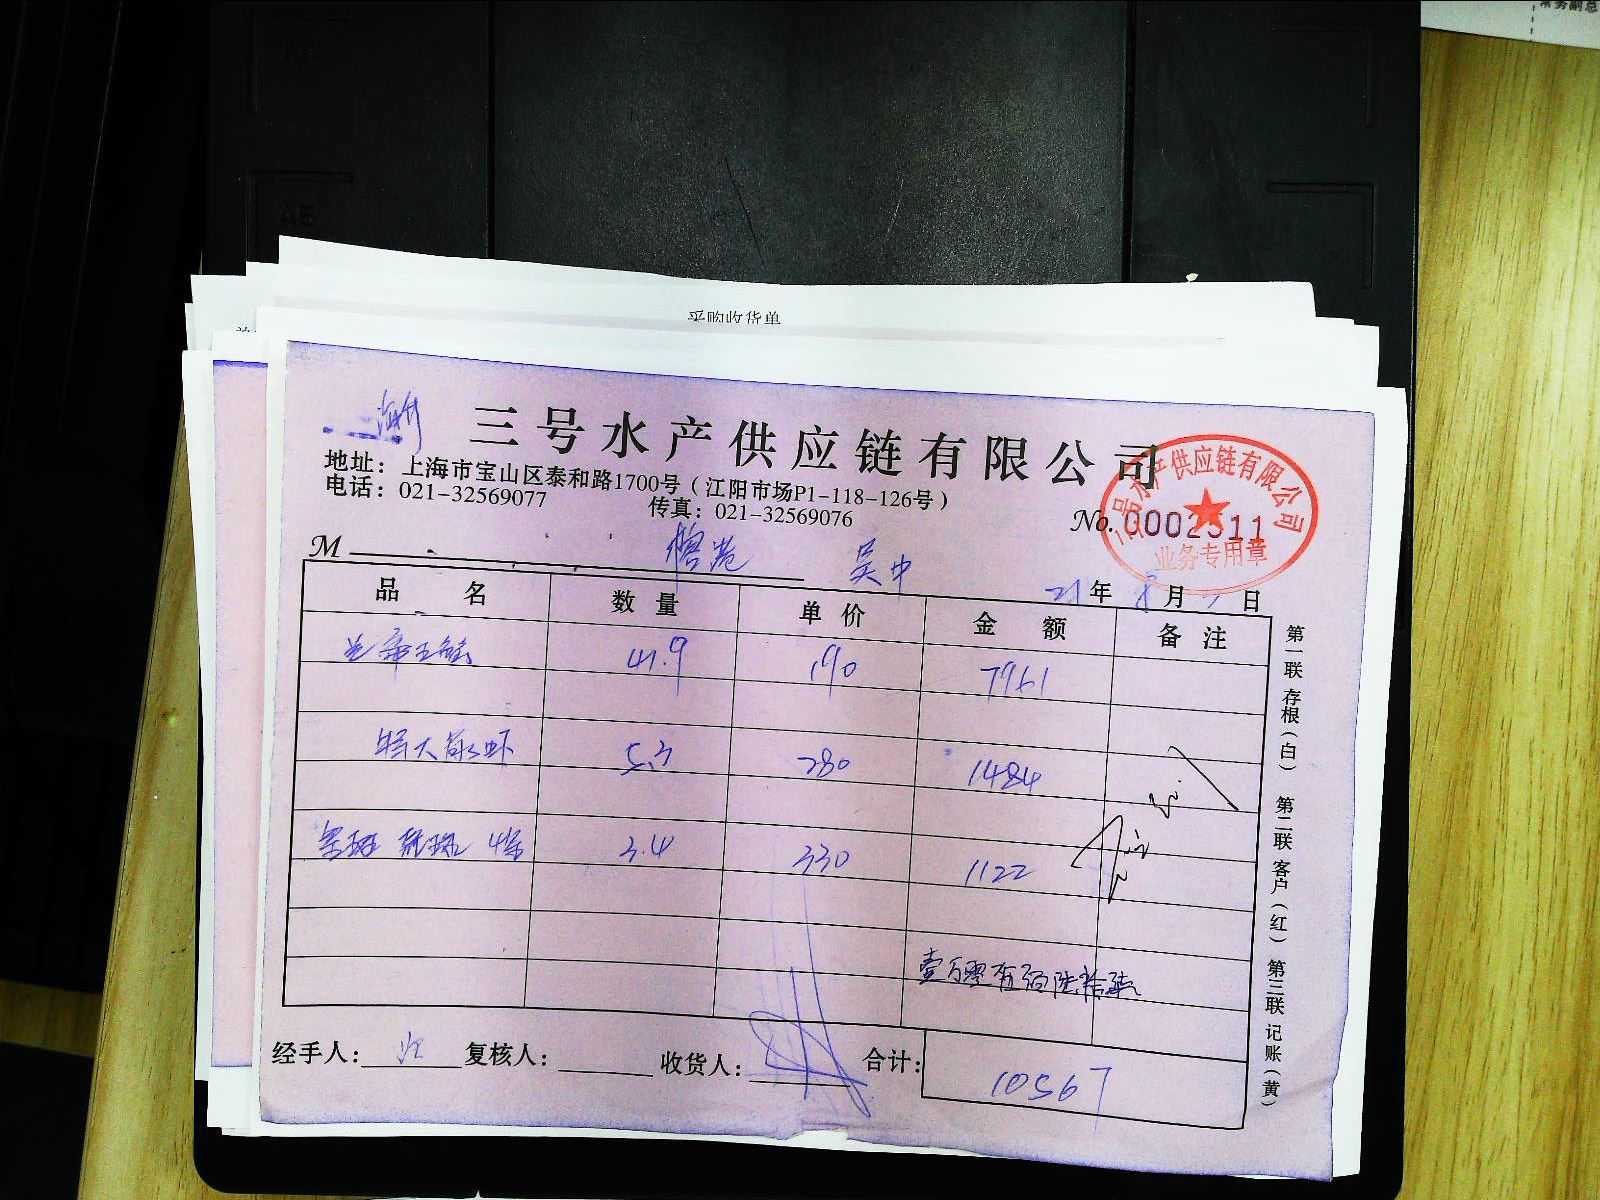 采购收货单
三号水产供应链有限公司
地址：上海市宝山区泰和路1700号（江阳市场P1-118-126号）
电话：021-32569077 传真：021-32569076
No. 0002511
三号水产供应链有限公司
业务专用章
M 榕港 吴中
21年 8月 日
品名 数量 单价 金额 备注
41.9 190 7961
特大 虾 5.3 280 1484
3.4 330 1122
壹万零伍佰陆拾柒
经手人： 复核人： 收货人： 合计： 10567
第一联 存根（白） 第二联 客户（红） 第三联 记账（黄）